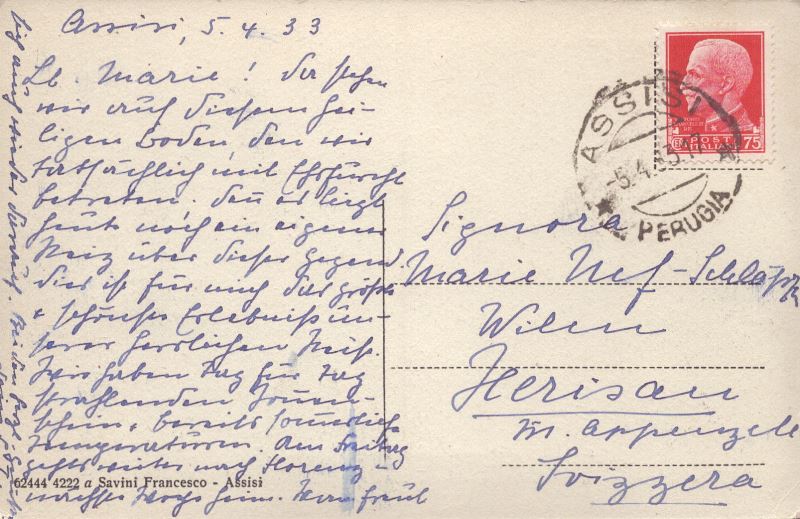 Assisi, 5. 4. 33
Lb. Marie! Da stehen
wir auf diesem hei-
ligen Boden, den wir
tatsächlich mit Ehrfurcht
betreten. Denn es liegt
heute noch ein eigener
Reiz über dieser Gegend.
Dies ist für mich das größte
& schönste Erlebnis un-
serer herrlichen Reise.
Wir haben Tag für Tag
strahlenden Sonnen-
schein & bereits sommerliche
Temperaturen. Am Freitag
gehts weiter nach Florenz -
nächste Woche heim. Man freut
sich auch wieder darauf.
62444 4222 a Savini Francesco - Assisi
POSTE
ITALIANE
75
ASSISI
-5.4.33.
PERUGIA
Signora
Marie Nef-Schläpfer
Wilen
Herisau
Kt. Appenzell
Svizzera